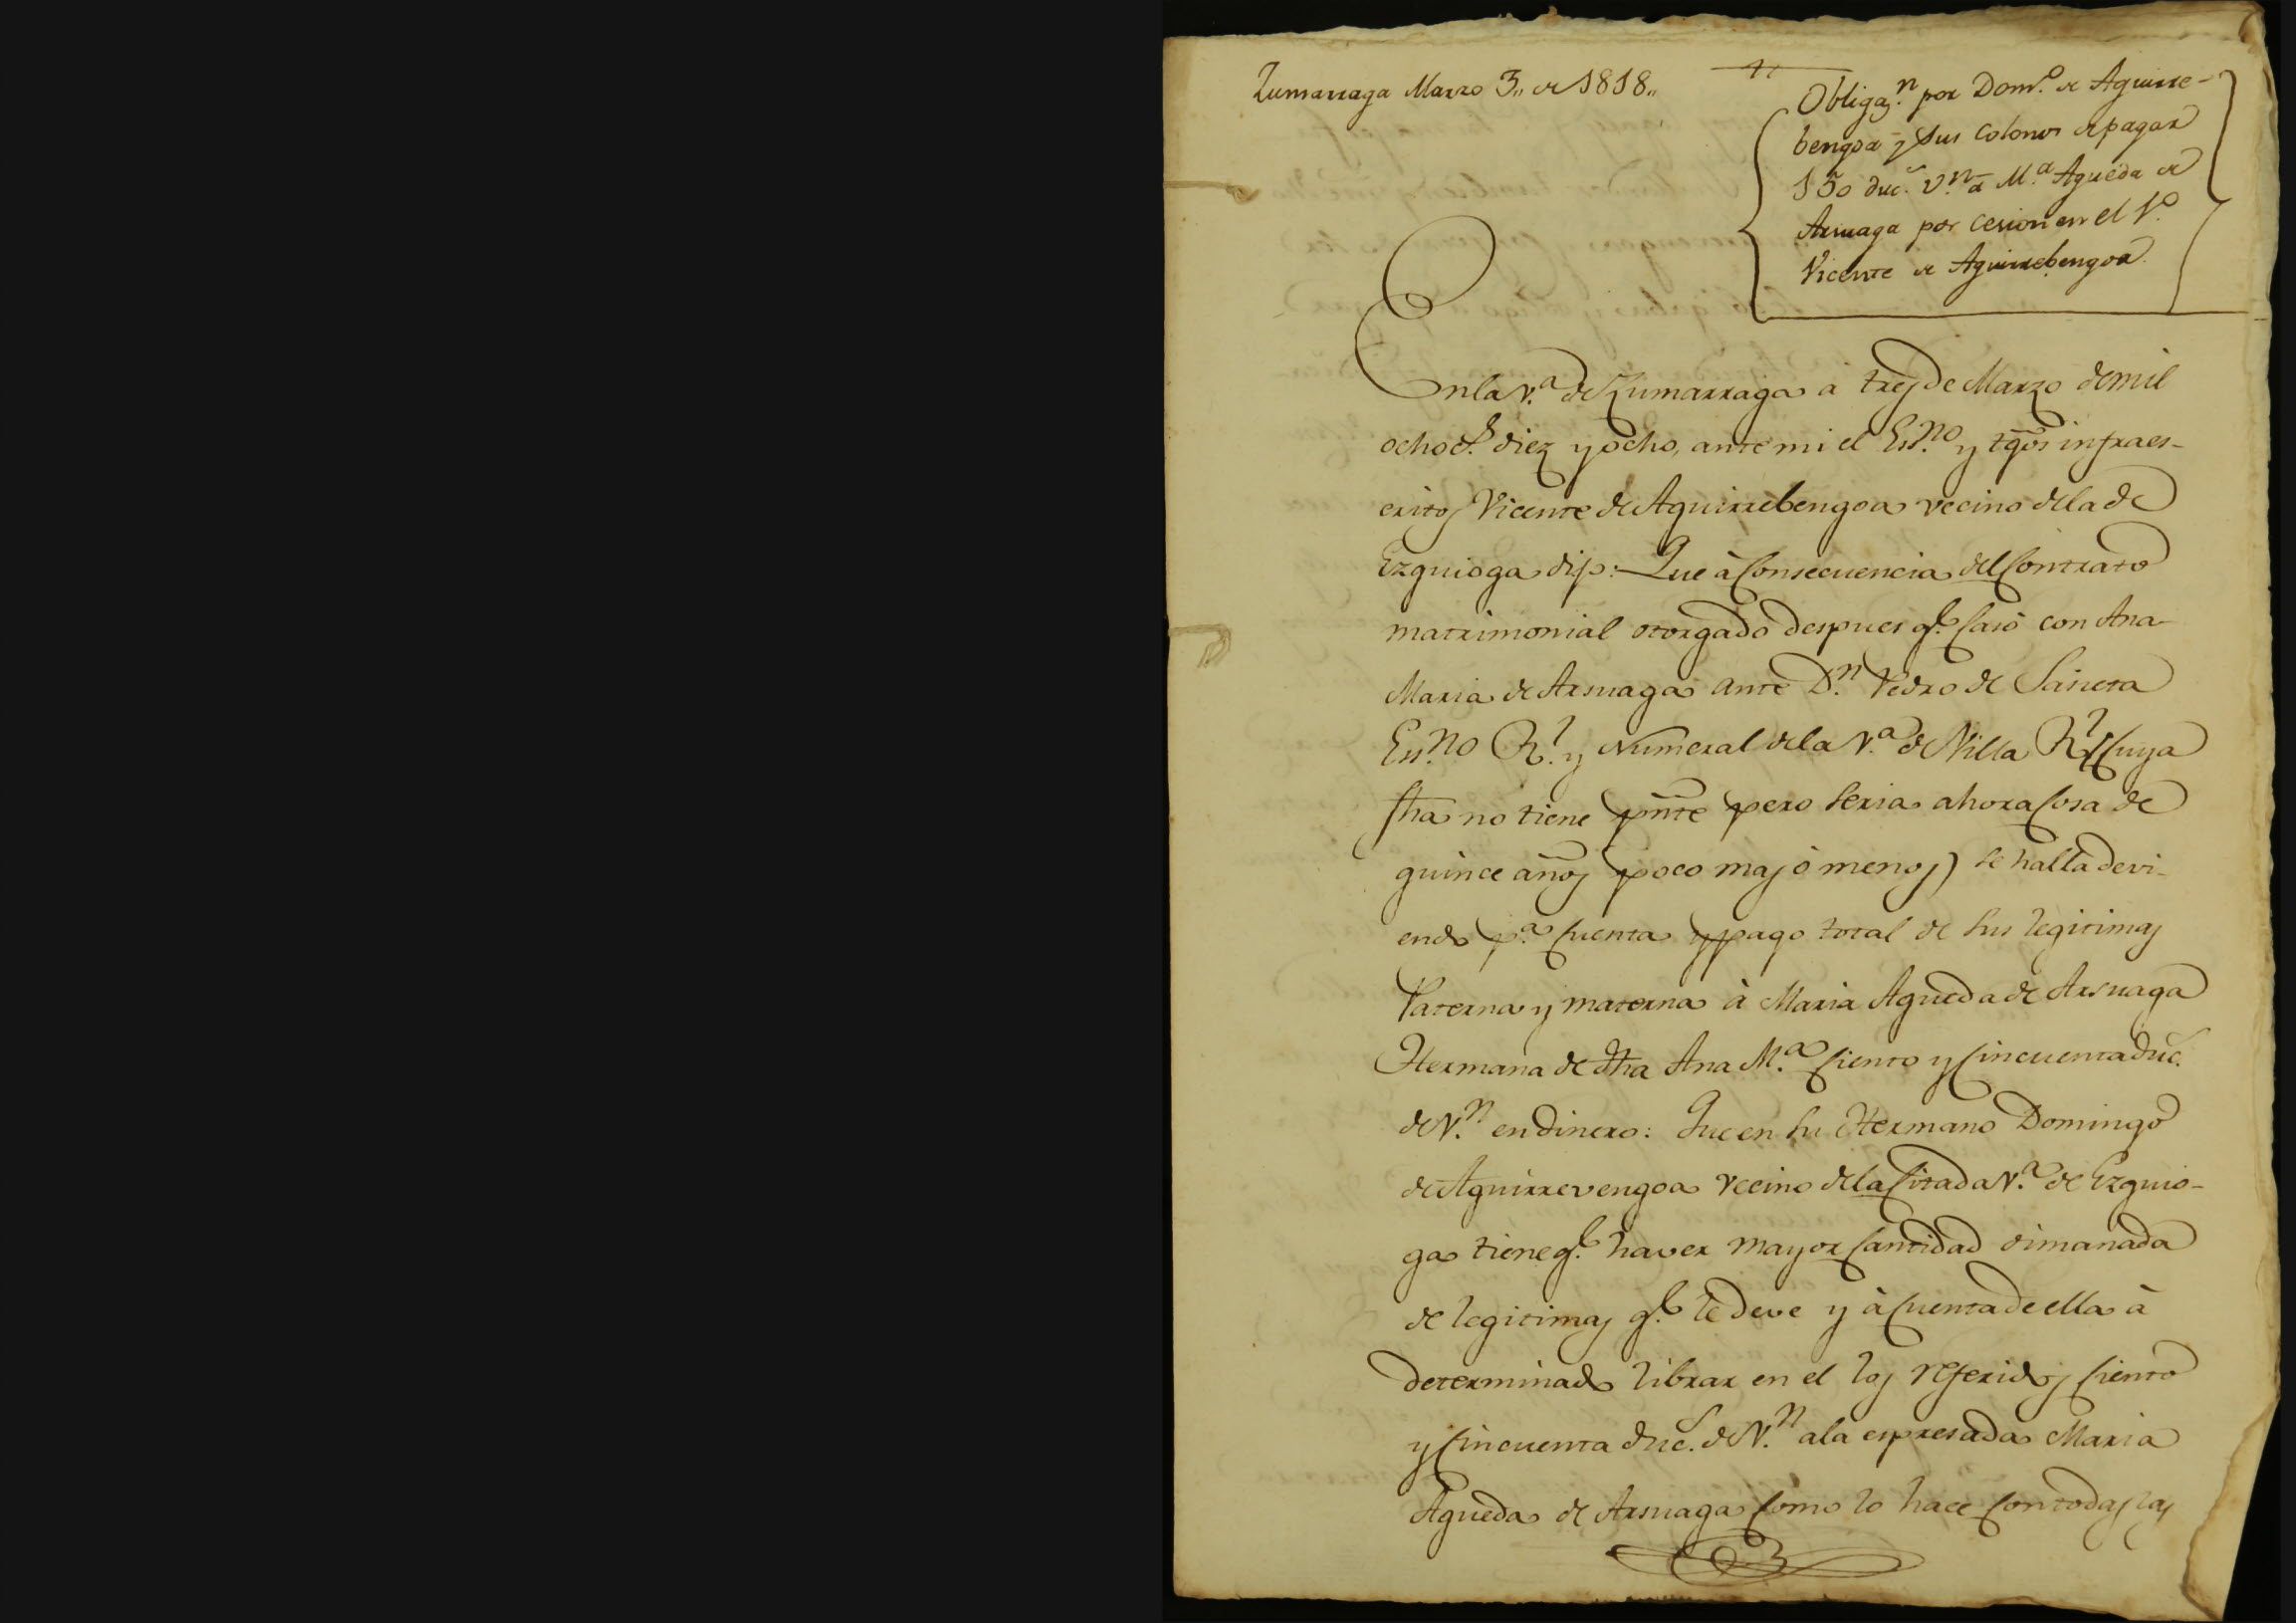 Zumarraga Marzo 3,, de 1818,,
Obligaz.n por Dom.o de Aguirre-
bengoa y sus Colonos de pagar
150 duc.s v.n a M.a Agueda de
Arsuaga por cesion en el
Vicente de Aguirrebengoa
En la v.a de Zumarraga à tres de Marzo de mil
ochoc.s diez y ocho, ante mi el Es.no y tgos infraes-
critos Vicente de Aguirrebengoa vecino de la de
Ezquioga dijo: Que à Consecuencia del Contrato
matrimonial otorgado despues q.e Casó con Ana
Maria de Arsuaga ante D.n Pedro de
Es.no R.l y Numeral de la v.a de Villa R.l (Cuya
fha no tiene pnte pero seria ahora Cosa de
quince años poco mas ó menos) se halla devi-
endo p.a Cuenta y pago total de sus legitimas
Paterna y materna à Maria Agueda de Arsuaga
Hermana de dha Ana M.a Ciento y Cincuenta duc.s
de v.n en dinero: Que en su Hermano Domingo
de Aguirrevengoa vecino de la Citada v.a de Ezquio-
ga tiene q.e haver mayor Cantidad dimanada
de legitimas q.e le deve y à Cuenta de ella à
determinado librar en el los referidos Ciento
y Cincuenta duc.s de v.n a la espresada Maria
Agueda de Arsuaga Como lo hace Con todas las